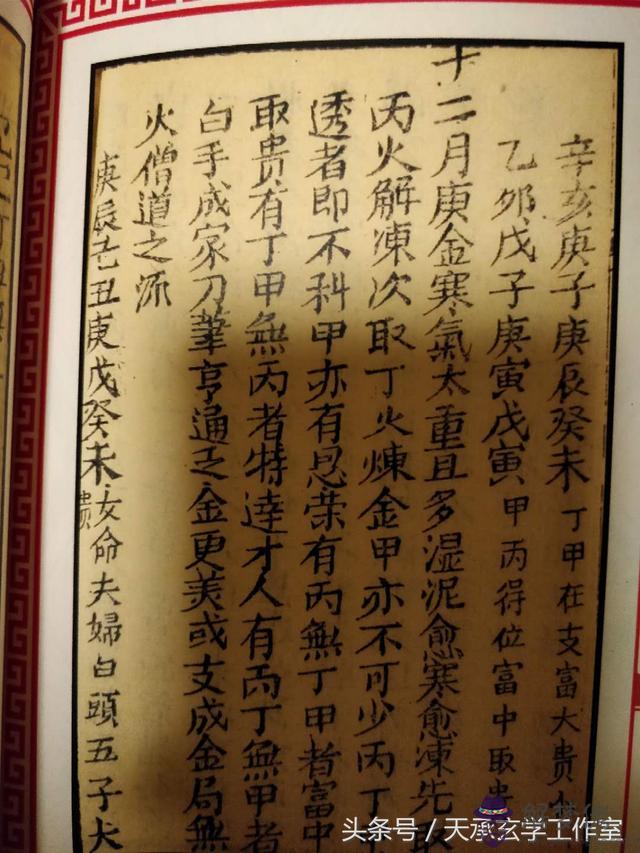 辛亥庚子庚辰癸未 丁甲在支富大贵小
乙卯戊子庚寅戊寅 甲丙得位富中取贵
十二月庚金寒氣太重且多湿泥愈寒愈凍先取
丙火解凍次取丁火煉金甲亦不可少丙丁
透者即不科甲亦有恩荣有丙無丁甲者富中
取贵有丁甲無丙者特達才人有丙丁無甲者
白手成家刀筆亨通乏金更美或支成金局無
火僧道之流
庚辰己丑庚戊癸未 女命夫婦白頭五子大
贵
头条号／天承玄学工作室